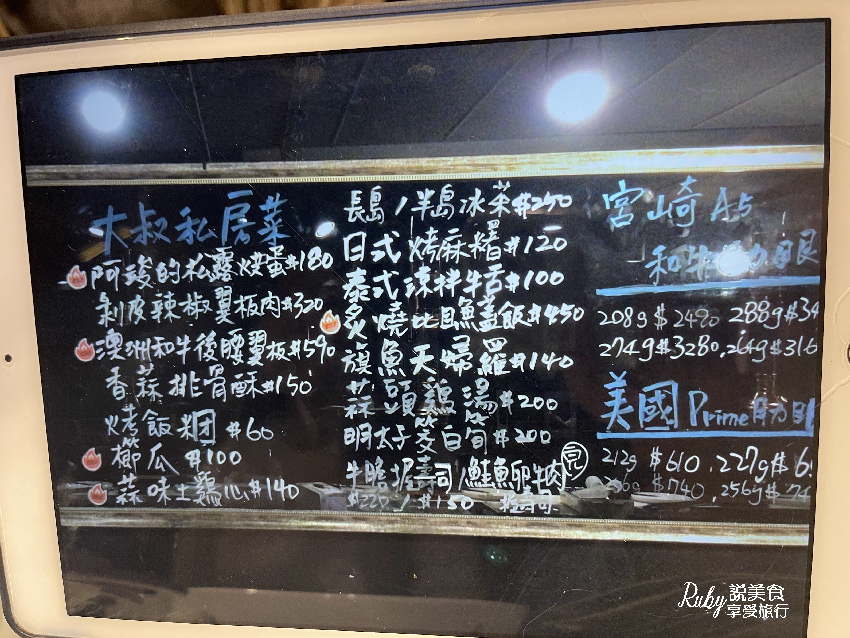 大叔私房菜
阿發的松露烘蛋$180
剝皮辣椒翼板肉$320
澳洲和牛後腰翼板$590
香蒜排骨酥$150
烤飯糰$60
櫛瓜$100
蒜味土雞心$140
長島/半島冰茶$250
日式烤麻糬$120
泰式涼拌牛舌$100
炙燒比目魚蓋飯$450
旗魚天婦羅$140
蒜頭雞湯$200
明太子筊白筍$200
牛膽握壽司/鮭魚卵牛肉
$220/$150 壽司
宮崎A5
和牛 眼
208g$2490 288g$34
274g$3280,264g$316
美國Prime
212g$610,227g$6
$740,256g$74
Ruby說美食
享受旅行